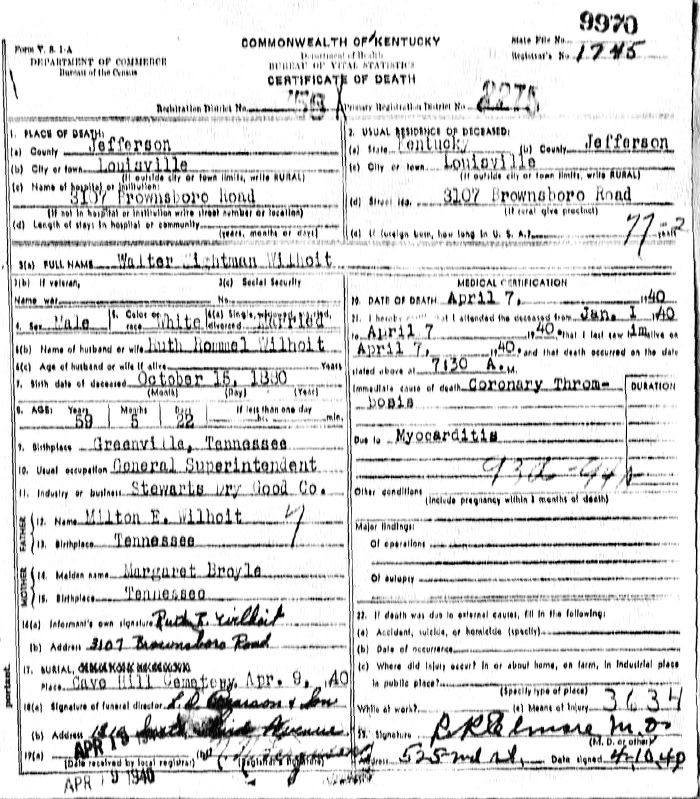 9970
Form V. S. 1-A
DEPARTMENT OF COMMERCE
Bureau of the Census
COMMONWEALTH OF KENTUCKY
Department of Health
BUREAU OF VITAL STATISTICS
CERTIFICATE OF DEATH
State File No.
Registrar's No. 1745
Registration District No. Primary Registration District No.
1. PLACE OF DEATH:
(a) County Jefferson
(b) City or town Louisville
(If outside city or town limits, write RURAL)
(c) Name of hospital or institution:
3107 Brownsboro Road
(If not in hospital or institution write street number or location)
(d) Length of stay: in hospital or community
(years, months or days)
2. USUAL RESIDENCE OF DECEASED:
(a) State Kentucky (b) County Jefferson
(c) City or town Louisville
(If outside city or town limits, write RURAL)
(d) Street No. 3107 Brownsboro Road
(If rural give precinct)
(e) If foreign born, how long in U. S. A.? years
3(a) FULL NAME Walter Wightman Wilhoit
3(b) If veteran,
Name war
3(c) Social Security
No.
4. Sex Male 5. Color or race White 6(a) Single, widowed, married, divorced Married
6(b) Name of husband or wife Ruth Rommel Wilhoit
6(c) Age of husband or wife if alive Years
7. Birth date of deceased October 15, 1880
(Month) (Day) (Year)
8. AGE: Years 59 Months 5 Days 22 If less than one day
hr. min.
9. Birthplace Greenville, Tennessee
10. Usual occupation General Superintendent
11. Industry or business Stewarts Dry Good Co.
FATHER
12. Name Milton E. Wilhoit
13. Birthplace Tennessee
MOTHER
14. Maiden name Margaret Broyle
15. Birthplace Tennessee
16(a) Informant's own signature Ruth R. Wilhoit
(b) Address 3107 Brownsboro Road
17. BURIAL,
Place Cave Hill Cemetery, Apr. 9, 40
18(a) Signature of funeral director L. D. Pearson & Son
(b) Address South Third Avenue
19(a)
(Date received by local registrar) (Registrar's signature)
APR 19 1940
portant.
MEDICAL CERTIFICATION
20. DATE OF DEATH April 7, 1940
21. I hereby certify that I attended the deceased from Jan. 1 1940
to April 7 1940, that I last saw him alive on
April 7, 1940, and that death occurred on the date
stated above at 7:30 A. M.
Immediate cause of death Coronary Throm-
bosis
DURATION
Due to Myocarditis
Other conditions
(Include pregnancy within 3 months of death)
Major findings:
Of operations
Of autopsy
22. If death was due to external causes, fill in the following:
(a) Accident, suicide, or homicide (specify)
(b) Date of occurrence
(c) Where did injury occur? In or about home, on farm, in industrial place
in public place?
(Specify type of place)
While at work? (e) Means of injury 3634
23. Signature B. R. Elmore M. D.
(M. D. or other)
Address Date signed 4-10-40